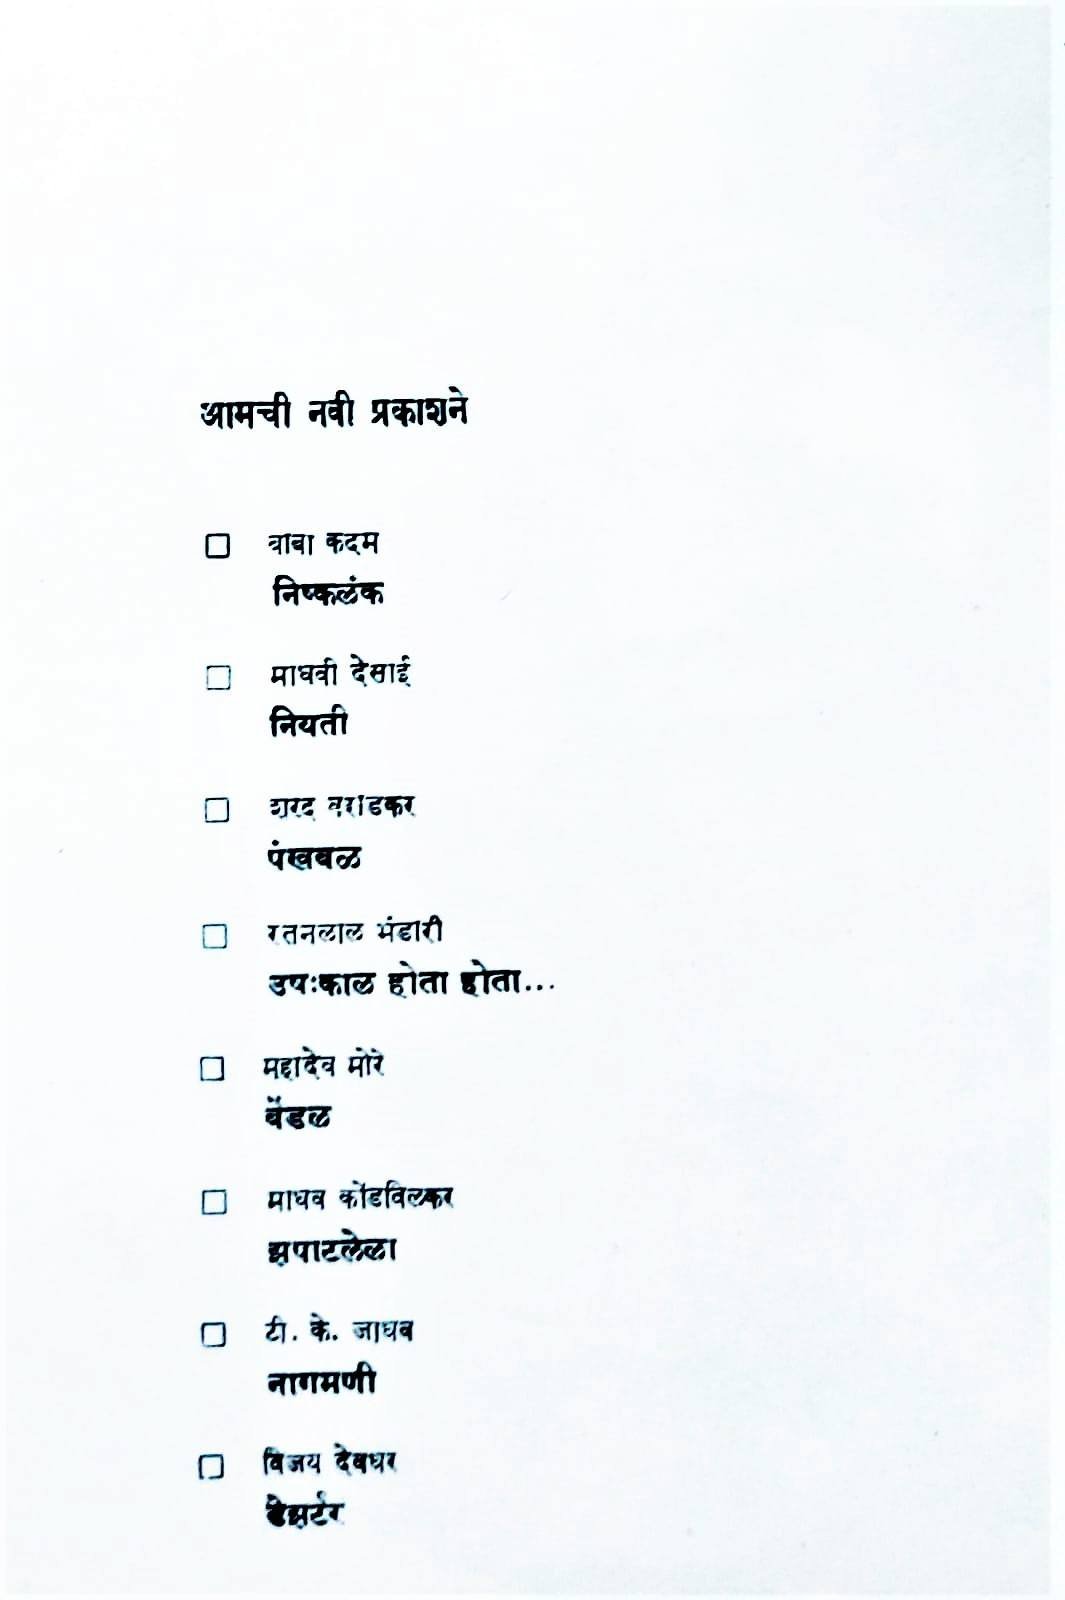 आमची नवी प्रकाशने
□ बाबा कदम
निष्कलंक
□ माधवी देसाई
नियती
□ शरद वरांडकर
पंखबळ
□ रतनलाल भंडारी
उषःकाल होता होता...
□ महादेव मोरे
बेंडल
□ माधव कोंडविलकर
झपाटलेला
□ टी. के. जाधव
नागमणी
□ विजय देवधर
डेझर्टर